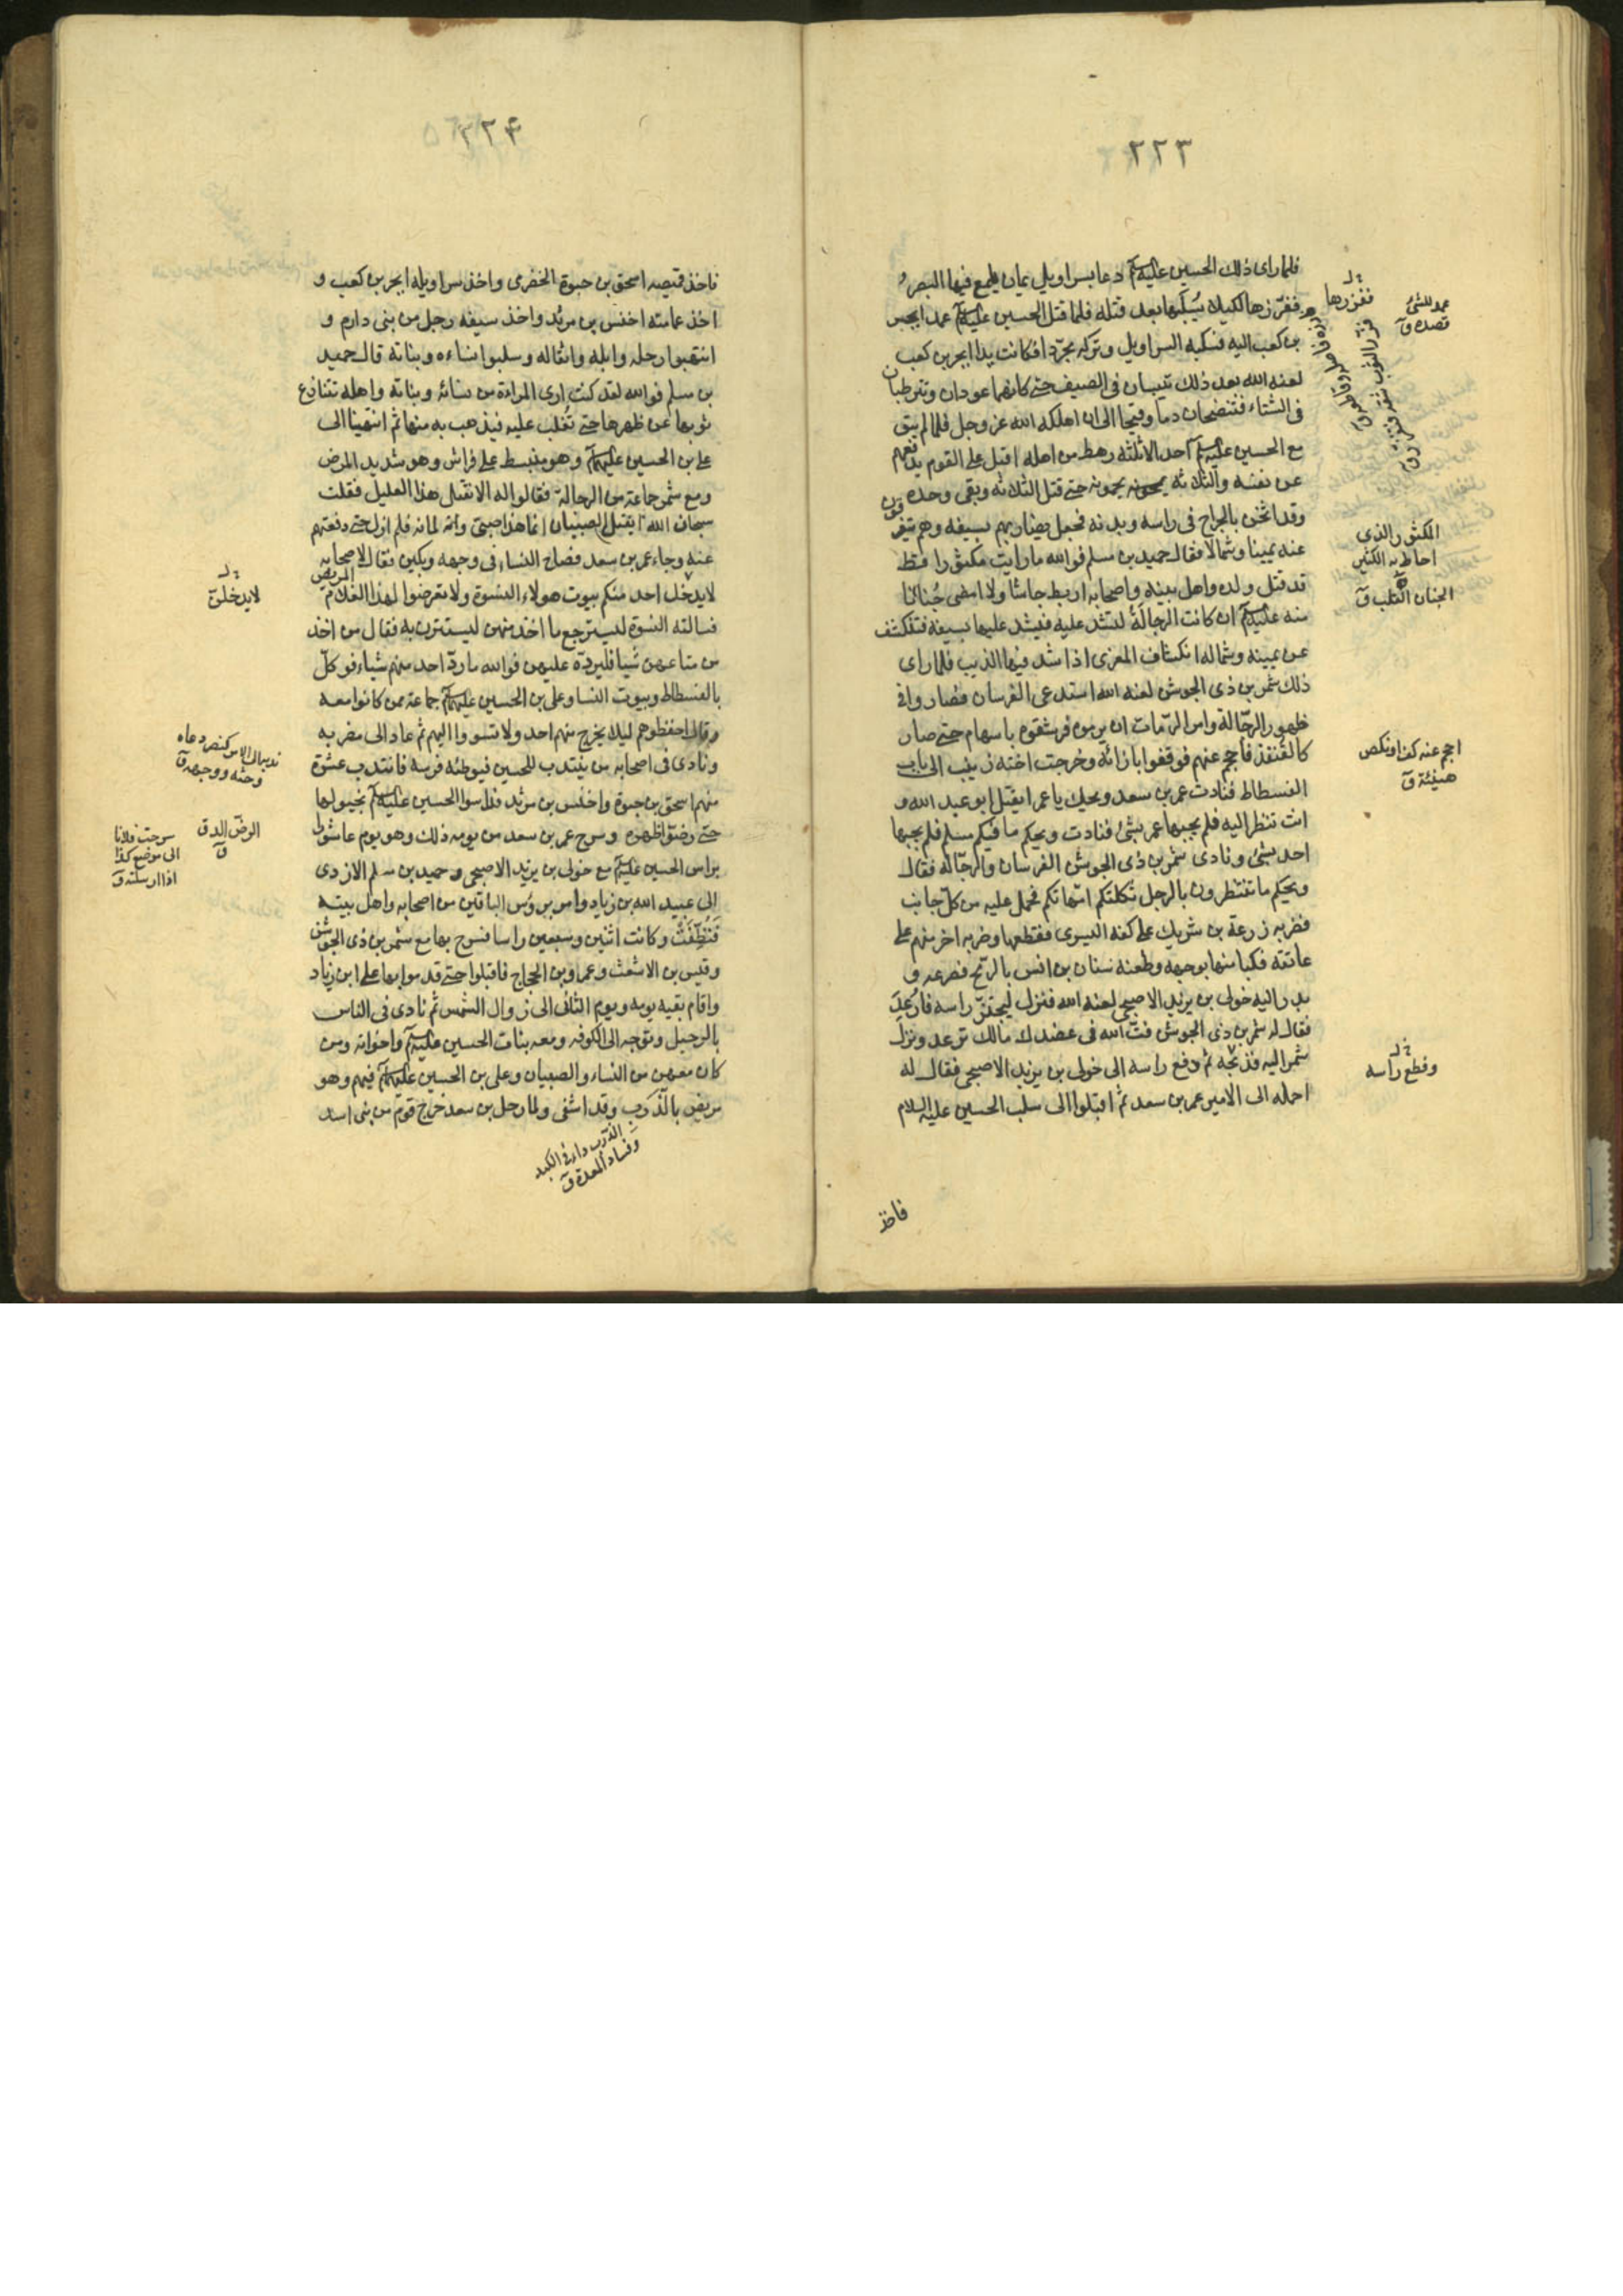 ٢٢٣
فلما رای ذلك الحسین علیه السلام دعا بسراویل یمان یلمع فیها البصر
ففزرها لکیلا یسلبها بعد قتله فلما قتل الحسین علیه السلام عمد ابجر
بن کعب الیه فسلبه السراویل وترکه مجردا فکانت یدا ابجر بن کعب
لعنه الله بعد ذلك تیبسان فی الصیف حتی کانهما عودان وتترطبان
فی الشتاء فتنضحان دما وقیحا الی ان اهلکه الله عز وجل فلما لم یبق
مع الحسین علیه السلام احد الا ثلثة رهط من اهله اقبل علی القوم یدفعهم
عن نفسه والثلاثة یحمونه حتی قتل الثلاثة وبقی وحده
وقد اثخن بالجراح فی راسه وبدنه فجعل یضاربهم بسیفه وهم یتفرقون
عنه یمینا وشمالا فقال حمید بن مسلم فوالله ما رایت مکثورا قط
قد قتل ولده واهل بیته واصحابه اربط جاشا ولا امضی جنانا
منه علیه السلام ان کانت الرجالة لتشد علیه فیشد علیها بسیفه فتنکشف
عن یمینه وشماله انکشاف المعزی اذا شد فیها الذیب فلما رای
ذلك شمر بن ذی الجوشن لعنه الله استدعی الفرسان فصاروا فی
ظهور الرجالة وامر الرمات ان یرموه فرشقوه باسهام حتی صار
کالقنفذ فاحجم عنهم فوقفوا بازائه وخرجت اخته زینب الی باب
الفسطاط فنادت عمر بن سعد ویحك یا عمر ایقتل ابو عبد الله و
انت تنظر الیه فلم یجبها عمر بشئ فنادت ویحکم ما فیکم مسلم فلم یجبها
احد بشئ ونادی شمر بن ذی الجوشن الفرسان والرجالة فقال
ویحکم ما تنتظرون بالرجل ثکلتکم امهاتکم فحمل علیه من کل جانب
فضربه زرعة بن شریك علی کفه الیسری فقطعها وضربه اخر منهم علی
عاتقه فکبا منها بوجهه وطعنه سنان بن انس بالرمح فصرعه و
بدر الیه خولی بن یزید الاصبحی لعنه الله فنزل لیجتز راسه فارعد
فقال له شمر بن ذی الجوشن فت الله فی عضدك مالك ترعد ونزل
شمر الیه فذبحه ثم دفع راسه الی خولی بن یزید الاصبحی فقال له
احمله الی الامیر عمر بن سعد ثم اقبلوا الی سلب الحسین علیه السلام
ففزرها
عمد للشئ
قصده ق
فزر الثوب شقه
المکثور الذی
احاط به الکثیر
الجنان القلب ق
احجم عنه کف او نکص
هیبة ق
وقطع راسه
فاخذ
٢٢۴
فاخذ قمیصه اسحق بن حبوة الحضرمی واخذ سراویله ابجر بن کعب و
اخذ عمامته اخنس بن مرثد واخذ سیفه رجل من بنی دارم و
انتهبوا رحله وابله واثقاله وسلبوا نساءه وبناته قال حمید
بن مسلم فوالله لقد کنت اری المراءة من نسائه وبناته واهله تنازع
ثوبها عن ظهرها حتی تغلب علیه فیذهب به منها ثم انتهینا الی
علی بن الحسین علیهما السلام وهو منبسط علی فراش وهو شدید المرض
ومع شمر جماعة من الرجالة فقالوا له الا نقتل هذا العلیل فقلت
سبحان الله ایقتل الصبیان انما هذا صبی وانه لما به فلم ازل حتی دفعتهم
عنه وجاء عمر بن سعد فصاح النساء فی وجهه وبکین فقال لاصحابه
لا یدخل احد منکم بیوت هولاء النسوة ولا تعرضوا لهذا الغلام المریض
فسالته النسوة لیسترجع ما اخذ منهن لیستترن به فقال من اخذ
من متاعهن شیا فلیرده علیهن فوالله ما رد احد منهم شیاء فوکل
بالفسطاط وبیوت النسا وعلی بن الحسین علیهما السلام جماعة ممن کانوا معه
وقال احفظوهم لیلا یخرج منهم احد ولا تسووا الیهم ثم عاد الی مضربه
ونادی فی اصحابه من ینتدب للحسین فیوطئه فرسه فانتدب عشرة
منهم اسحق بن حبوة واخنس بن مرثد فداسوا الحسین علیه السلام بخیولها
حتی رضوا ظهره وسرح عمر بن سعد من یومه ذلك وهو یوم عاشورا
براس الحسین علیه السلام مع خولی بن یزید الاصبحی وحمید بن مسلم الازدی
الی عبید الله بن زیاد وامر بروس الباقین من اصحابه واهل بیته
فنظفت وکانت اثنین وسبعین راسا فسرح بها مع شمر بن ذی الجوشن
وقیس بن الاشعث وعمرو بن الحجاج فاقبلوا حتی قدموا بها علی ابن زیاد
واقام بقیه یومه ویوم الثانی الی زوال الشمس ثم نادی فی الناس
بالرحیل وتوجه الی الکوفه ومعه بنات الحسین علیه السلام واخواته ومن
کان معهن من النساء والصبیان وعلی بن الحسین علیهما السلام فیهم وهو
مریض بالذرب وقد اشفی ولما رحل بن سعد خرج قوم من بنی اسد
لا یدخلن
ندبه الی الامر کنصر دعاه
وحثه ووجهه ق
الرض الدق
ق
سرحت فلانا
الی موضع کذا
اذا ارسلته ق
الذرب داء فی الکبد
وفساد المعدة ق